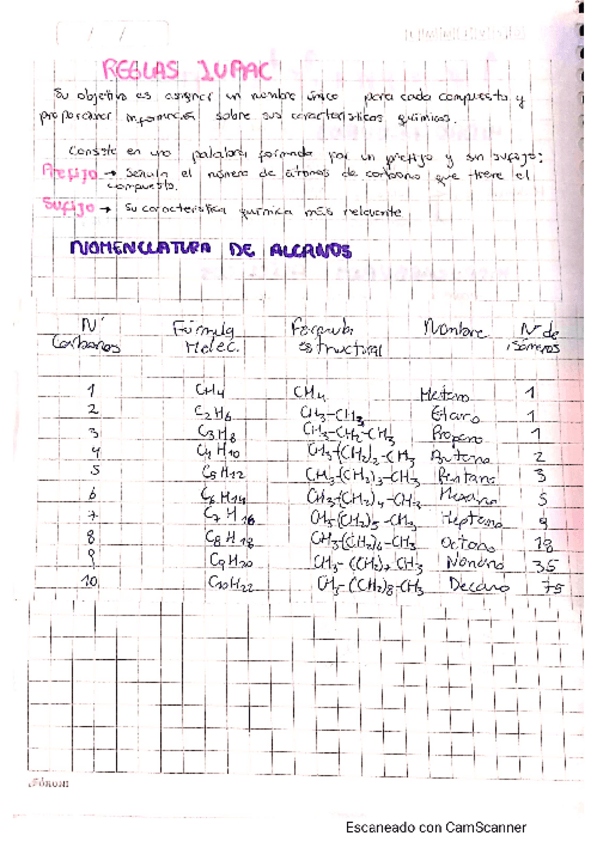 REGLAS IUPAC
Su objetivo es asignar un nombre único para cada compuesto y
proporcionar información sobre sus características químicas.
Consiste en una palabra formada por un prefijo y un sufijo:
Prefijo → Señala el número de átomos de carbono que tiene el
compuesto.
Sufijo → Su característica química más relevante
NOMENCLATURA DE ALCANOS
N° Carbonos Fórmula Molec. Fórmula estructural Nombre N° de isómeros
1 CH4 CH4 Metano 1
2 C2H6 CH3-CH3 Etano 1
3 C3H8 CH3-CH2-CH3 Propano 1
4 C4H10 CH3-(CH2)2-CH3 Butano 2
5 C5H12 CH3-(CH2)3-CH3 Pentano 3
6 C6H14 CH3-(CH2)4-CH3 Hexano 5
7 C7H16 CH3(CH2)5-CH3 Heptano 9
8 C8H18 CH3-(CH2)6-CH3 Octano 18
9 C9H20 CH3-(CH2)7 CH3 Nonano 35
10 C10H22 CH3-(CH2)8-CH3 Decano 75
Escaneado con CamScanner